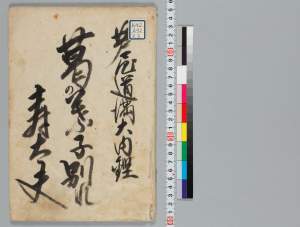 芦屋道満大内鑑
葛の葉子別れ
寿太夫